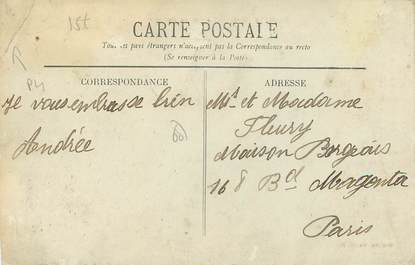 1st
CARTE POSTALE
Tous les pays étrangers n'acceptent pas la Correspondance au recto
(Se renseigner à la Poste)
CORRESPONDANCE
ADRESSE
je vous embrasse bien
Andrée
Mr et Madame
Fleury
Maison Bergeais
168 Bd Magenta
Paris